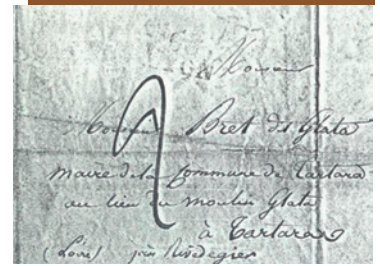 Monsieur
Monsieur Bret dit Glata
maire de la Commune de Tartara
au lieu du moulin Glata
à Tartaras
(Loire) près Rivedegier